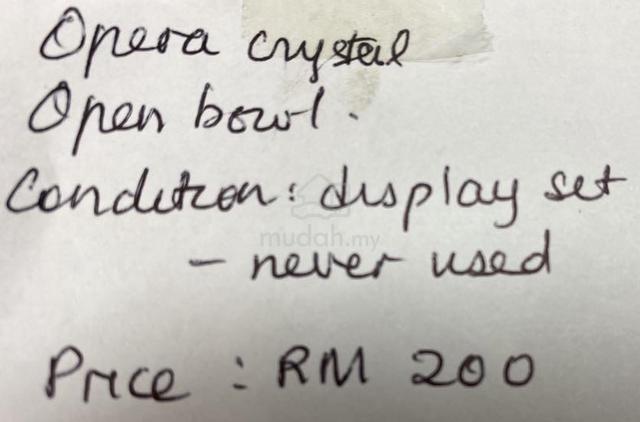 Opera crystal
Open bowl.
Condition: display set
mudah.my
- never used
Price : RM 200